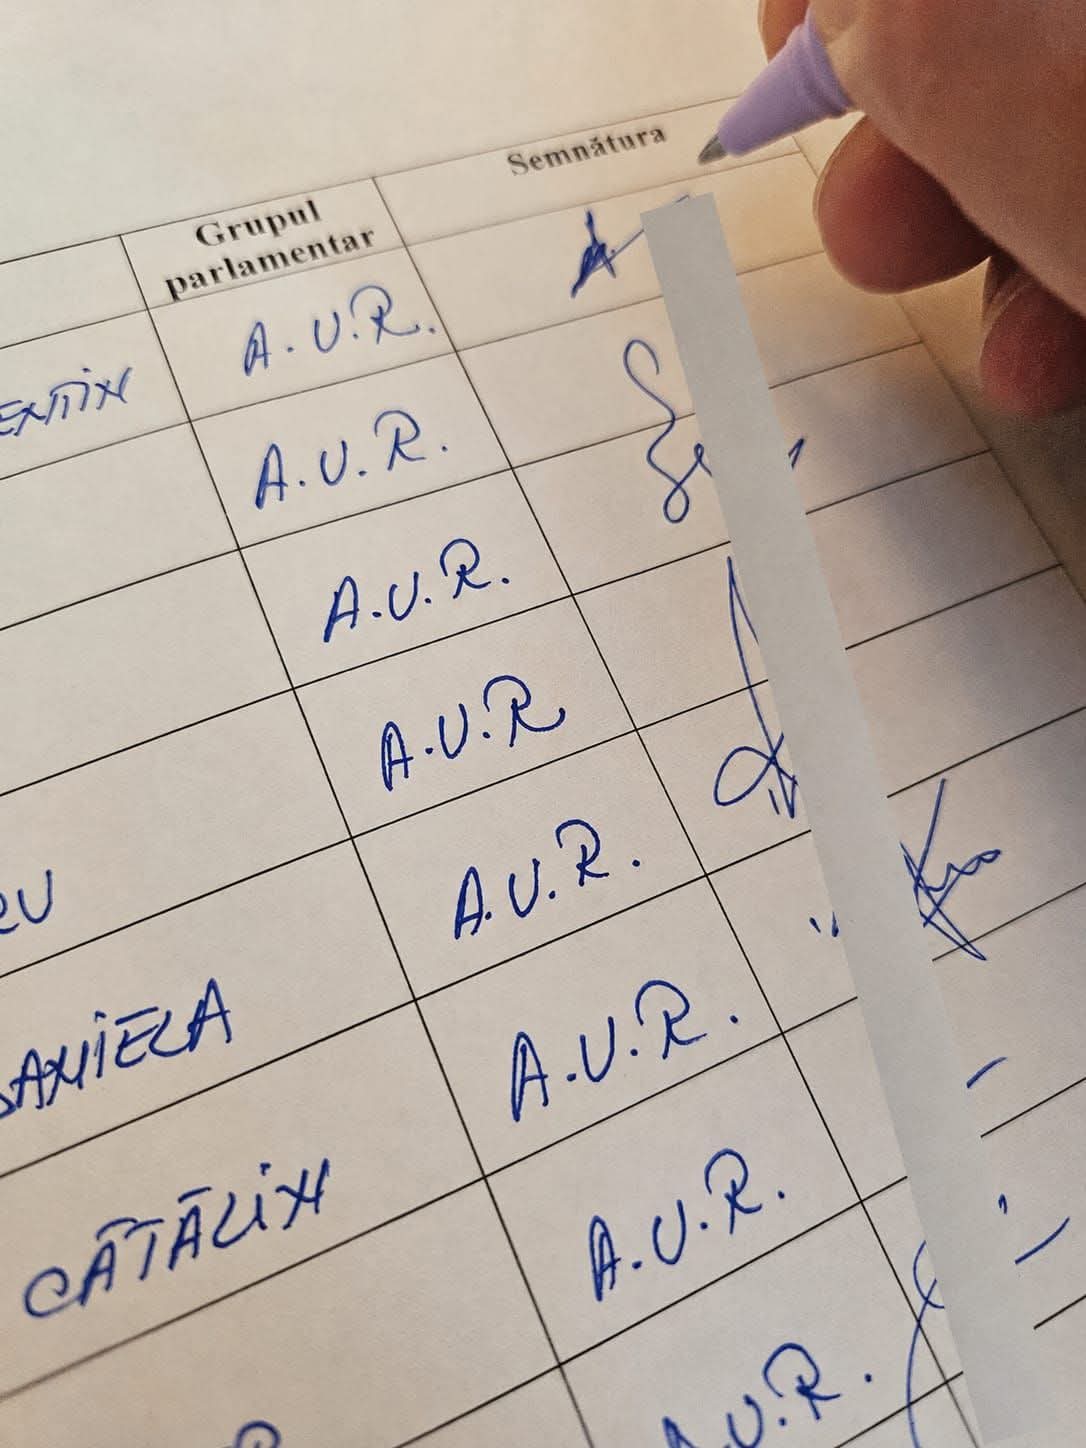 Grupul parlamentar Semnătura
A.U.R.
A.U.R.
A.U.R.
A.U.R
A.U.R.
DANIELA A.U.R.
CĂTĂLIN A.U.R.
A.U.R.